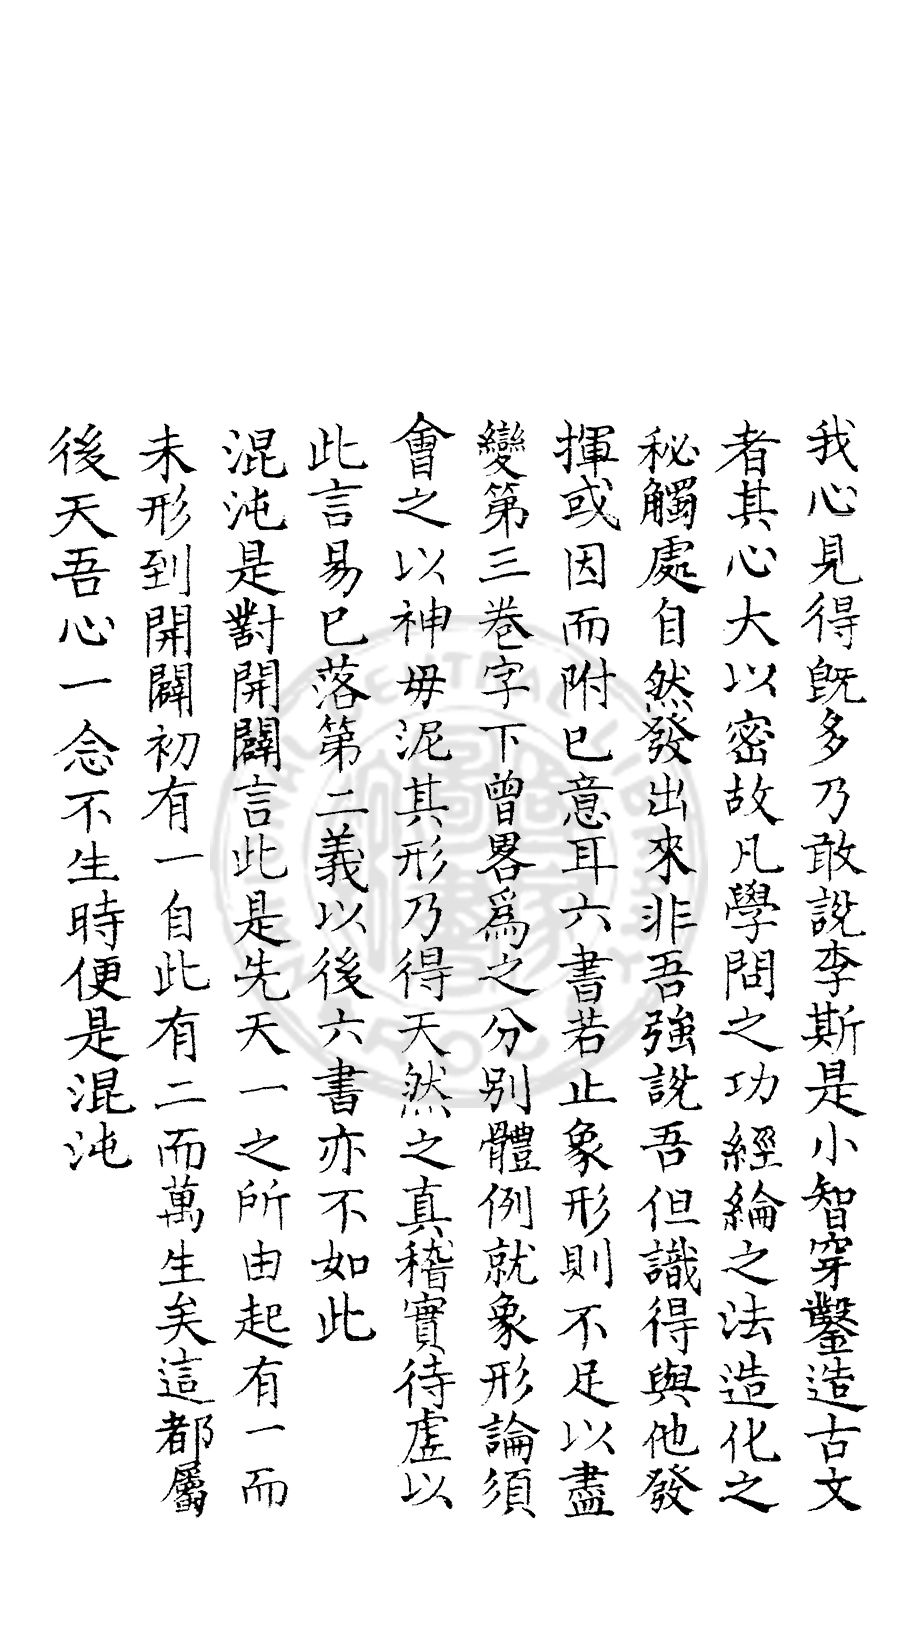 我心見得旣多乃敢說李斯是小智穿鑿造古文
者其心大以密故凡學問之功經綸之法造化之
秘觸處自然發出來非吾強說吾但識得與他發
揮或因而附已意耳六書若止象形則不足以盡
變第三卷字下曾畧爲之分別體例就象形論須
會之以神毋泥其形乃得天然之真稽實待虛以
此言易已落第二義以後六書亦不如此
混沌是對開闢言此是先天一之所由起有一而
未形到開闢初有一自此有二而萬生矣這都屬
後天吾心一念不生時便是混沌